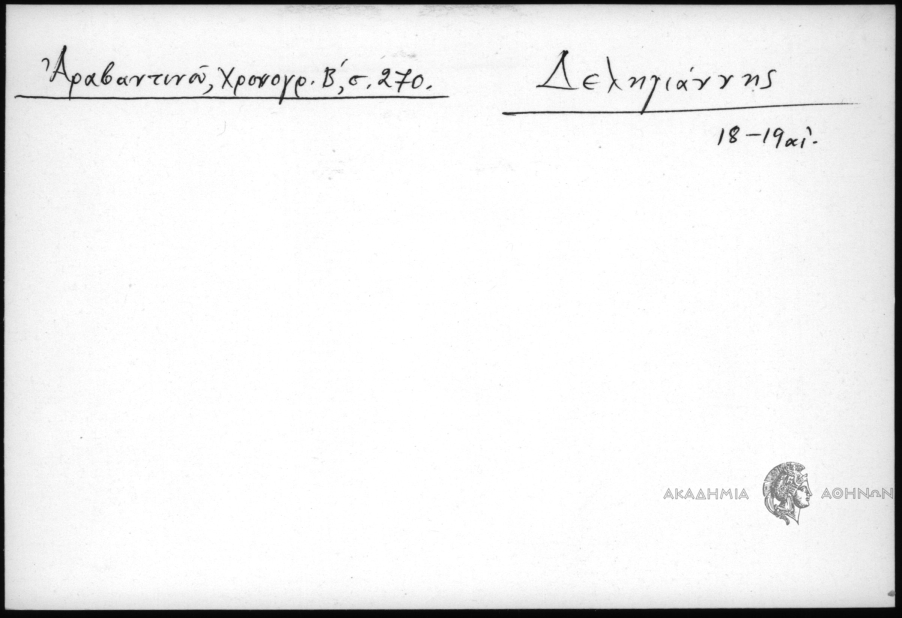 Ἀραβαντινοῦ, Χρονογρ. Β΄, σ. 270.
Δεληγιάννης
18-19 αἰ.
ΑΚΑΔΗΜΙΑ ΑΘΗΝΩΝ